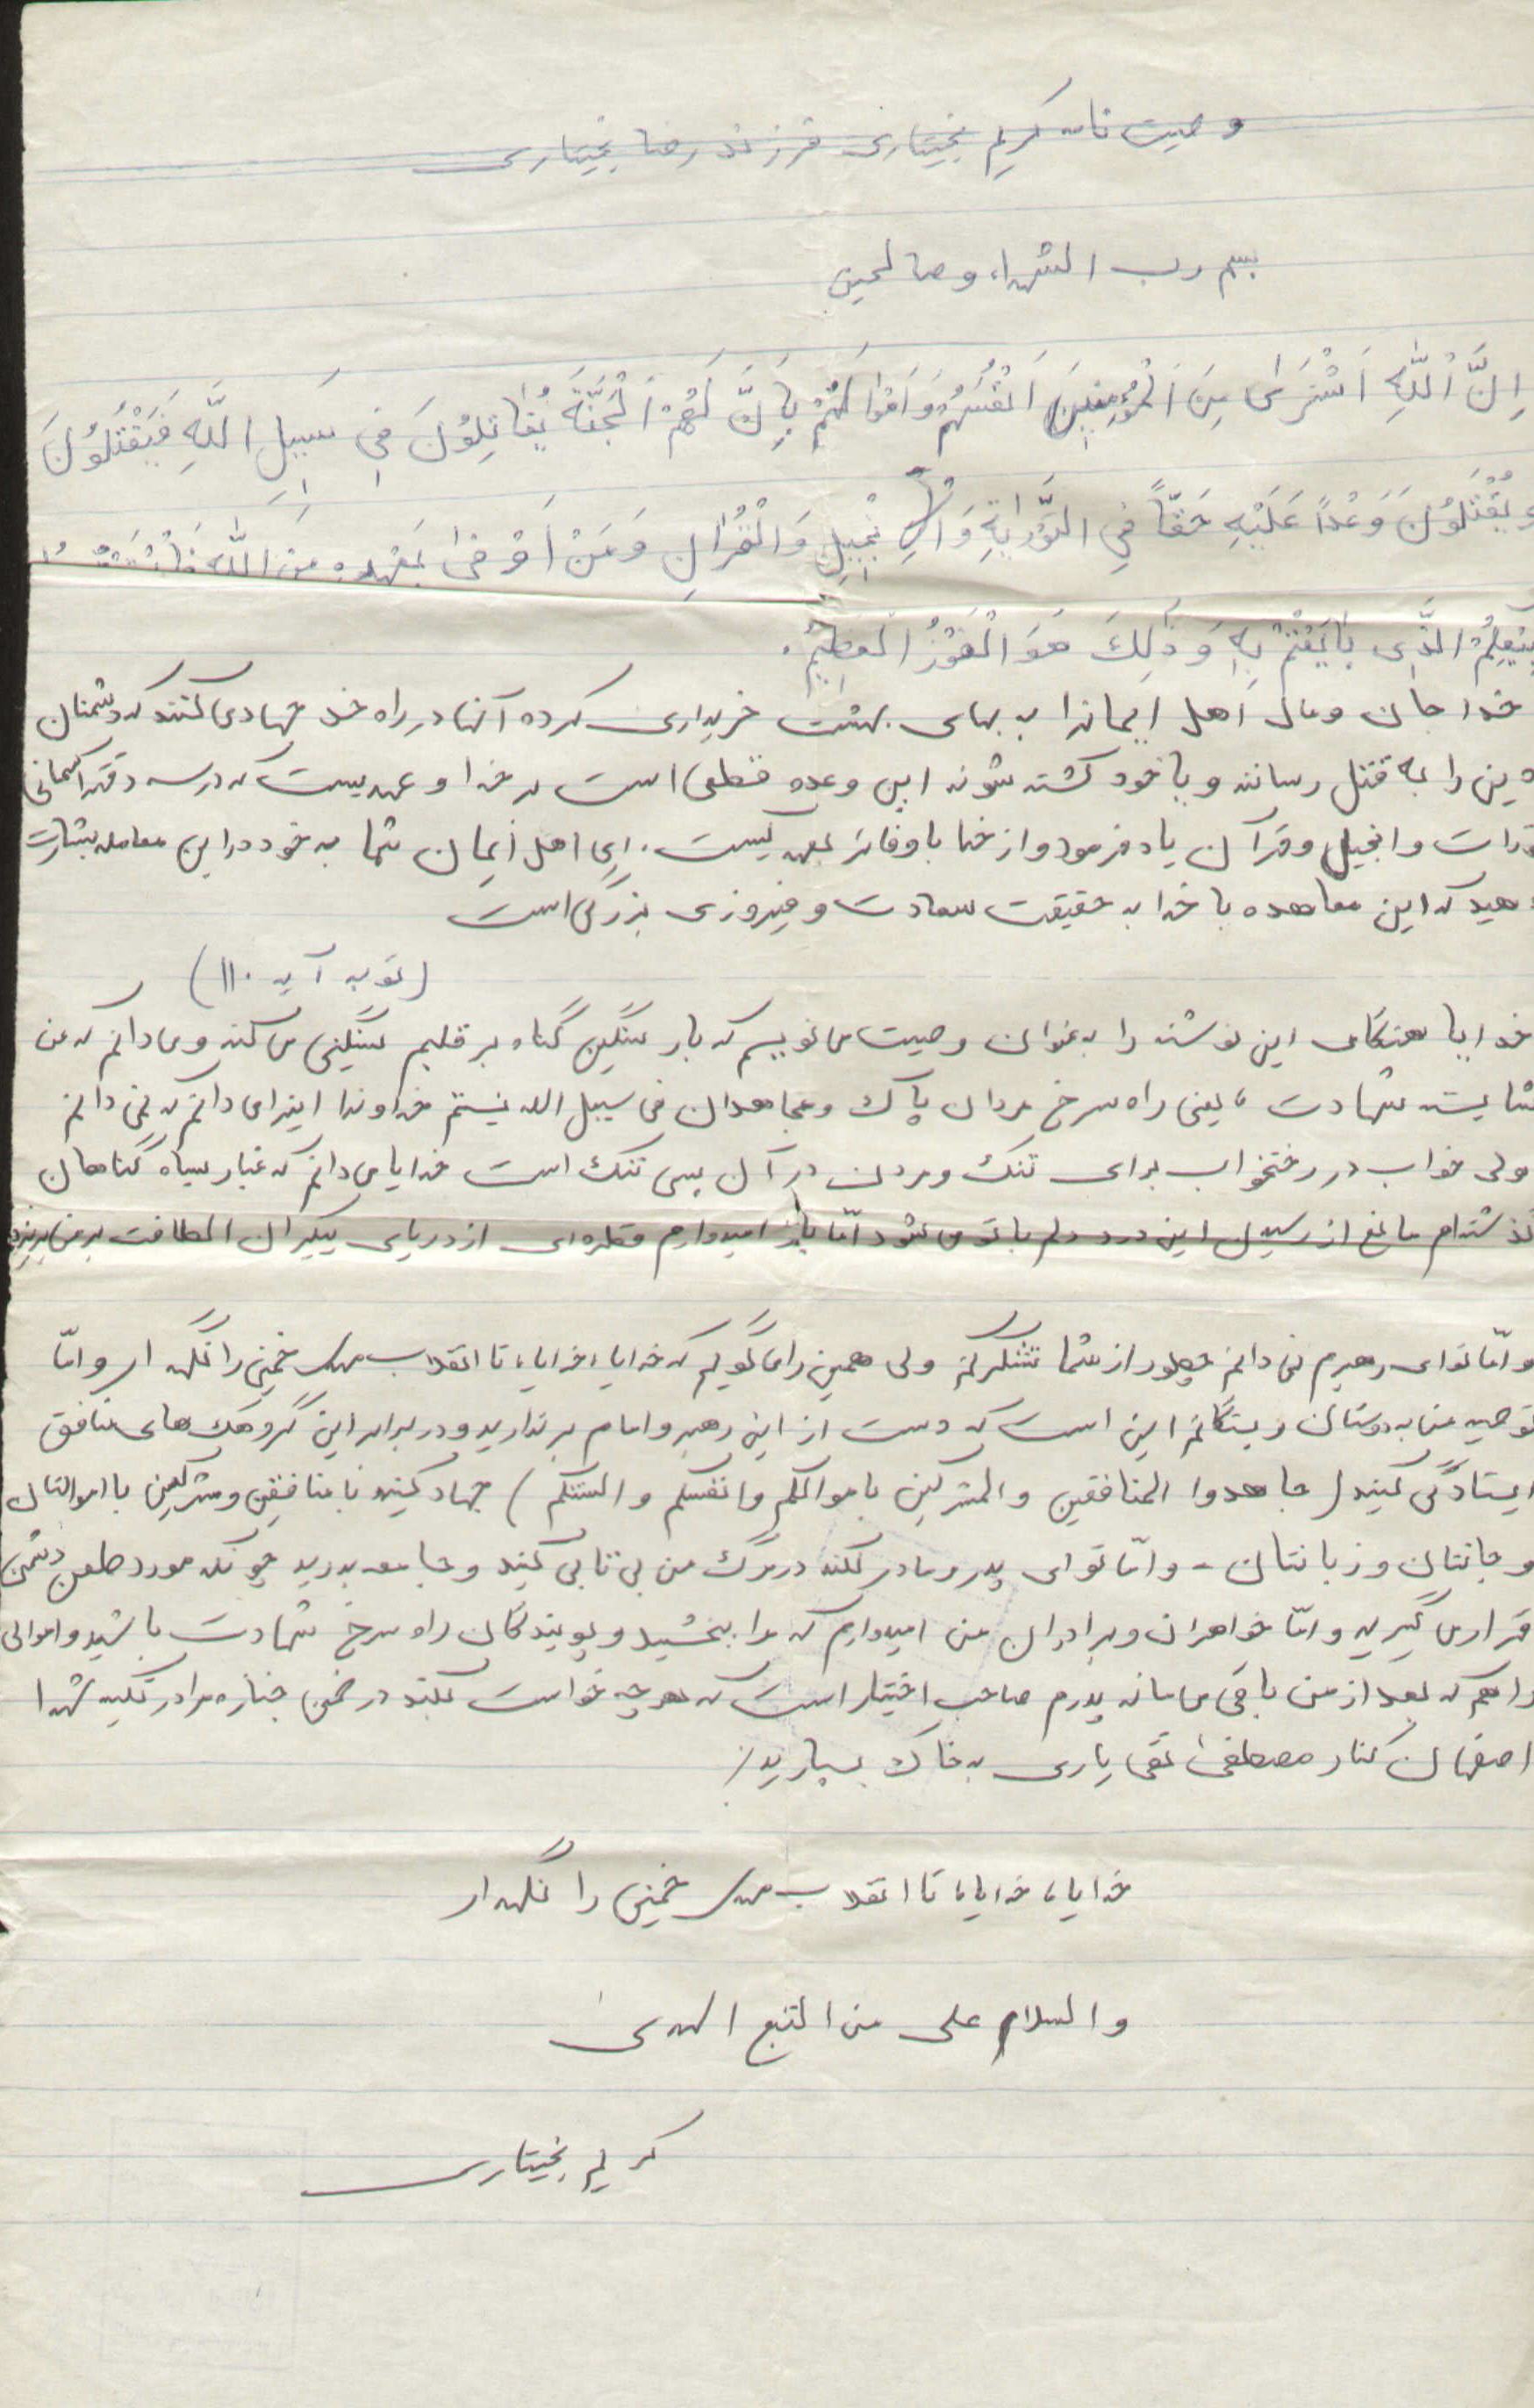 وصیت نامه کریم بختیاری فرزند رضا بختیاری
بسم رب الشهداء و صالحین
اِنَّ اللّهِ اَشْتَرَىٰ مِنَ اَلْمُؤمِنینَ اَنْفُسَهُمْ وَ اَمْوٰالَهُمْ بِاَنَّ لَهُمْ اَلْجَنَّةَ یُقٰاتِلُونَ فِی سَبیلِ اللّهِ فَیَقْتُلُونَ
وَ یُقْتَلُونَ وَعْدَاً عَلَیْهِ حَقّاً فِی التَّوْرٰایةِ وَ اْلاِنْجیٖلِ وَ الْقُرْانِ وَ مَنْ اَوْفىٰ بِعَهْدِهِ مِنَ اللّٰهِ
بِبَیْعِکُمْ الَّذی بٰایَعْتُمْ بِهِ وَ ذٰلِکَ هُوَ الْفَوْزُ الْعَظیٖمُ.
خدا جان و مال اهل ایمانرا به بهای بهشت خریداری کرده آنها در راه خدا جهاد می کنند که دشمنان
دین را به قتل رسانند و یا خود کشته شوند این وعده قطعی است بر خدا و عهدیست که در سه دفتر آسمانی
تورات و انجیل و قرآن یاد فرموده و از خدا با وفاتر بعهد کیست. ای اهل ایمان شما به خود در این معامله بشارت
دهید که این معاهده با خدا به حقیقت سعادت و فیروزی بزرگی است
(توبه آیه ۱۱۰)
خدایا هنگامی این نوشته را به عنوان وصیت می نویسم که بار سنگین گناه بر قلبم سنگینی می کند و می دانم که من
شایسته شهادت، یعنی راه سرخ مردان پاک و مجاهدان فی سبیل الله نیستم خداوندا اینرا می دانم که نمی دانم
ولی خواب در رختخواب برای تنگ و مردن در آن بسی تنگ است خدایا می دانم که غبار سیاه گناهان
گذشته‌ام مانع از رسیدن این درد دلم با تو می شود امّا باز امیدوارم قطره‌ای از دریای بیکران الطافت بر من بریزد
و امّا تو ای رهبرم نمی دانم چطور از شما تشکر کنم ولی همین را می گویم که خدایا، خدایا، تا انقلاب مهدی خمینی را نگهدار و امّا
توصیه من به دوستان و بستگانم این است که دست از این رهبر و امام برندارید و در برابر این گروهک های منافق
ایستادگی کنید (جاهدوا المنافقین و المشرکین باموالکم و انفسکم و السنتکم) جهاد کنید با منافقین و مشرکین با اموالتان
و جانتان و زبانتان - و امّا تو ای پدر و مادر نکند در مرگ من بی تابی کنید و جامه بدرید چونکه مورد طعن دشمن
قرار می گیرید و امّا خواهران و برادران من امیدوارم که مرا ببخشید و پویندگان راه سرخ شهادت باشید و اموالی
را هم که بعد از من باقی می ماند پدرم صاحب اختیار است که هر چه خواست بکند در ضمن جنازه مرا در تکیه شهدا
اصفهان کنار مصطفی تقی یاری به خاک بسپارید/
خدایا، خدایا، تا انقلاب مهدی خمینی را نگهدار
والسلام على من التبع الهدى
کریم بختیاری